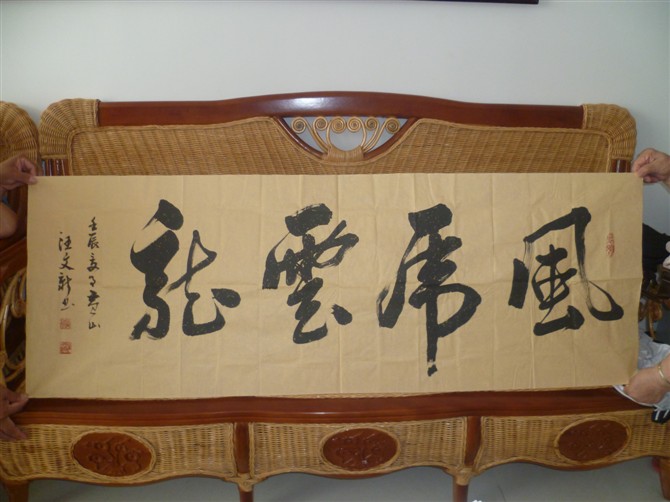 風虎雲龍
壬辰夏于山
汪文新书